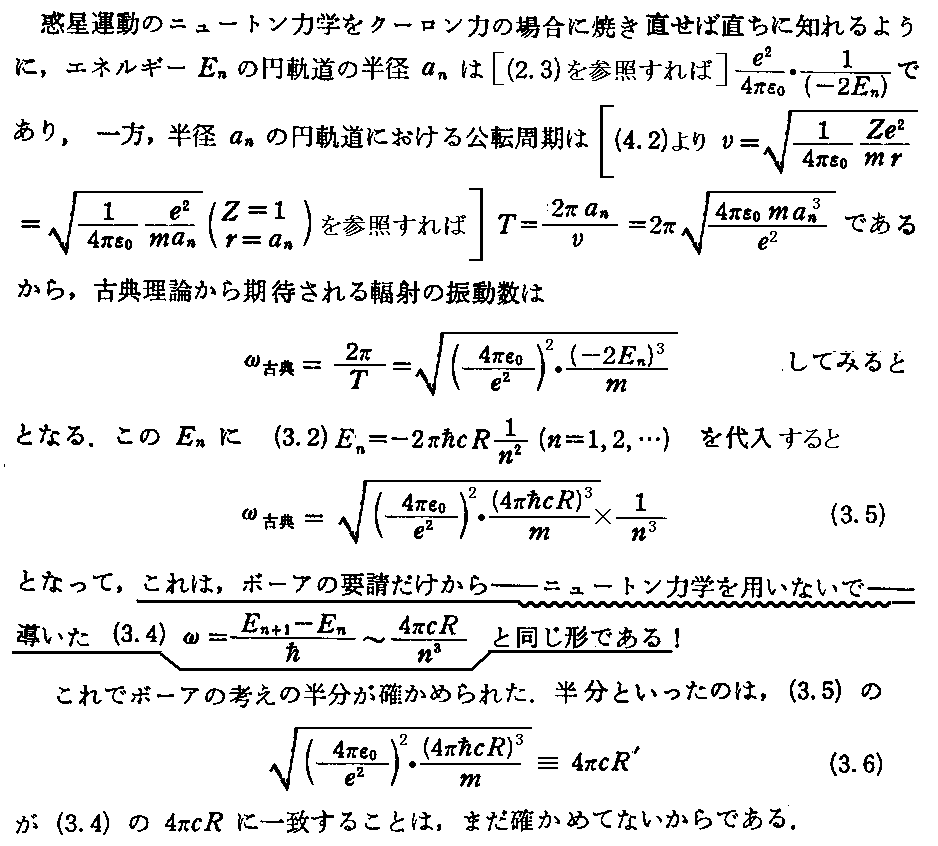 惑星運動のニュートン力学をクーロン力の場合に焼き直せば直ちに知れるよう
に，エネルギー Eₙ の円軌道の半径 aₙ は［(2.3)を参照すれば］e²/4πε₀・1/(−2Eₙ) で
あり， 一方，半径 aₙ の円軌道における公転周期は［(4.2)より v=√(1/4πε₀ Ze²/mr)
=√(1/4πε₀ e²/maₙ) (Z=1 r=aₙ) を参照すれば］T=2πaₙ/v=2π√(4πε₀maₙ³/e²) である
から，古典理論から期待される輻射の振動数は
ω古典 = 2π/T = √((4πε₀/e²)²・(−2Eₙ)³/m) してみると
となる．この Eₙ に (3.2) Eₙ=−2πℏcR 1/n² (n=1, 2, …) を代入すると
ω古典 = √((4πε₀/e²)²・(4πℏcR)³/m)×1/n³ (3.5)
となって，これは，ボーアの要請だけから——ニュートン力学を用いないで——
導いた (3.4) ω=(Eₙ₊₁−Eₙ)/ℏ～4πcR/n³ と同じ形である！
これでボーアの考えの半分が確かめられた．半分といったのは，(3.5) の
√((4πε₀/e²)²・(4πℏcR)³/m) ≡ 4πcR′ (3.6)
が (3.4) の 4πcR に一致することは，まだ確かめてないからである．